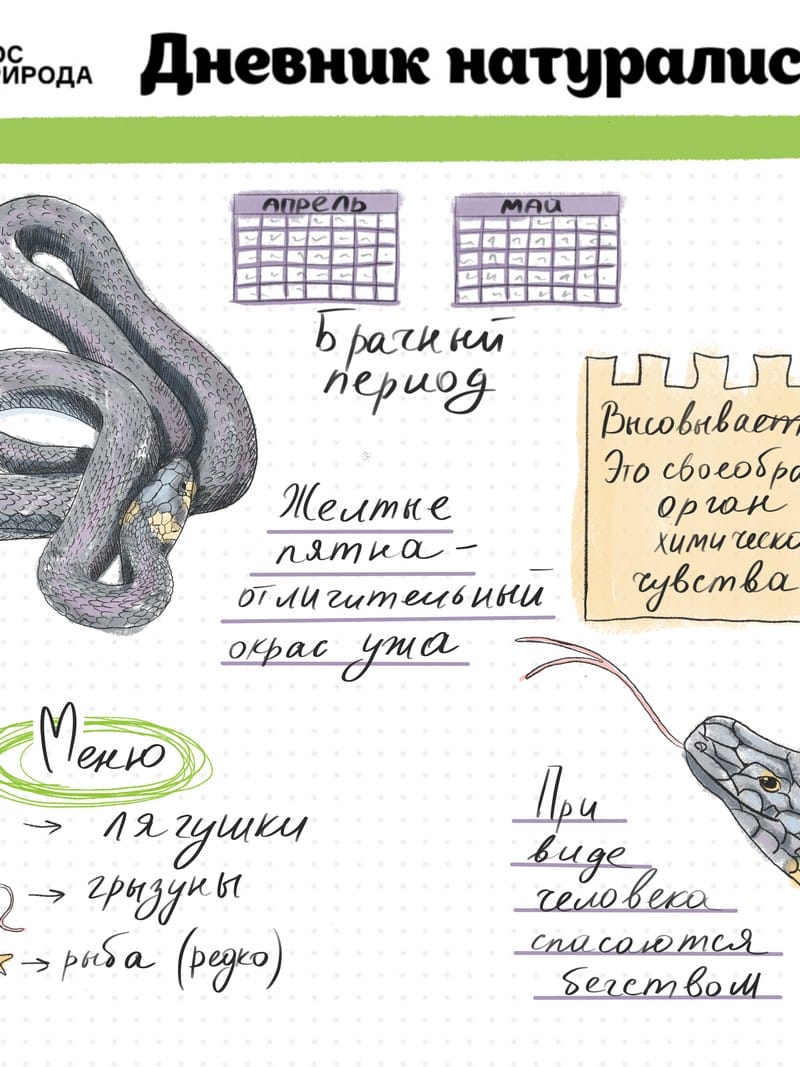 ОС
ИРОДА
Дневник натуралис
АПРЕЛЬ
МАЙ
Брачный
период
Высовывает
Это своеобра
орган
химическо
чувства
Желтые
пятна -
отличительный
окрас ужа
Меню
→ лягушки
→ грызуны
→ рыба (редко)
При
виде
человека
спасаются
бегством